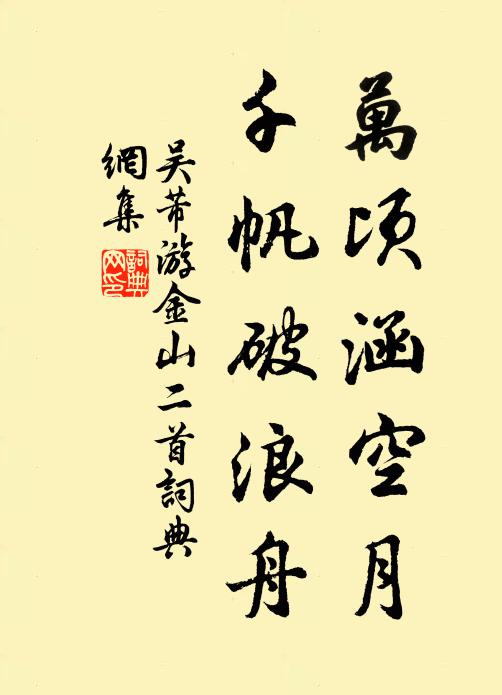 萬頃涵空月
千帆破浪舟
吴芾游金山二首詞典
網集
詞典
网印